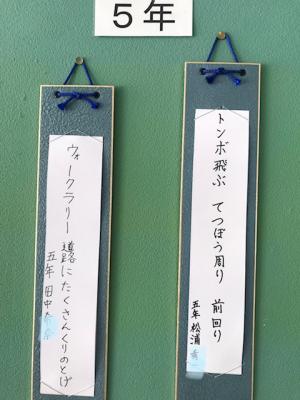 5年
トンボ飛ぶ てつぼう周り 前回り
五年 松浦
ウォークラリー 道路にたくさんくりのとげ
五年 田中